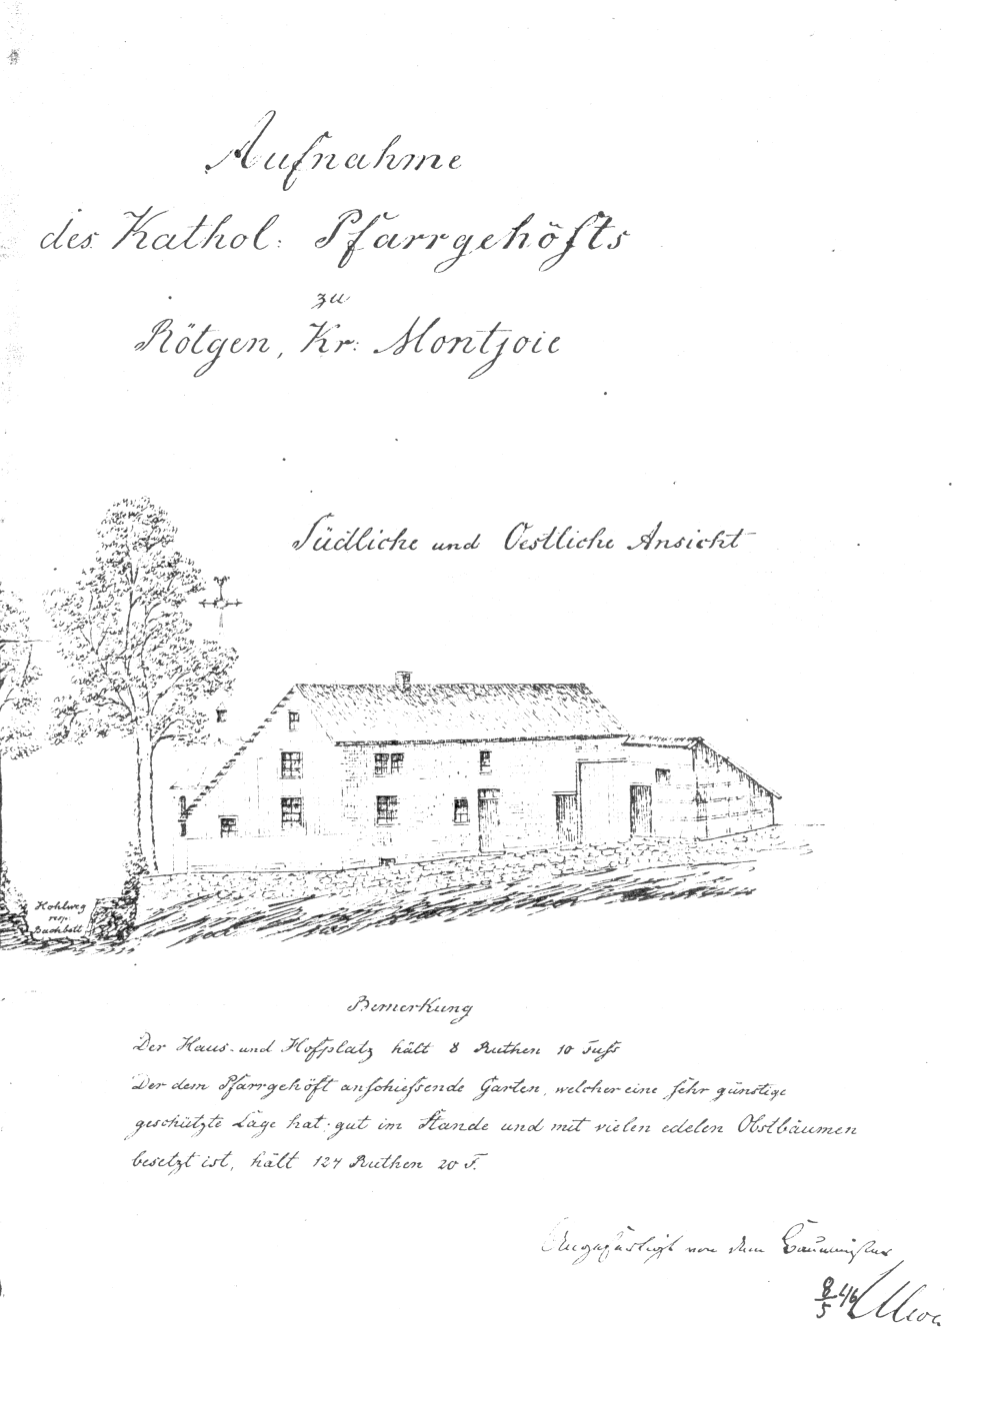 Aufnahme
des Kathol: Pfarrgehöfts
zu
Rötgen, Kr: Montjoie
Südliche und Oestliche Ansicht
Hohlweg
resp.
Bachbett
Bemerkung
Der Haus- und Hofplatz hält 8 Ruthen 10 Fuss
Der dem Pfarrgehöft anschiessende Garten, welcher eine sehr günstige
geschützte Lage hat, gut im Stande und mit vielen edelen Obstbäumen
besetzt ist, hält 124 Ruthen 20 F.
Angefertigt von dem Baumeister
8/5 46